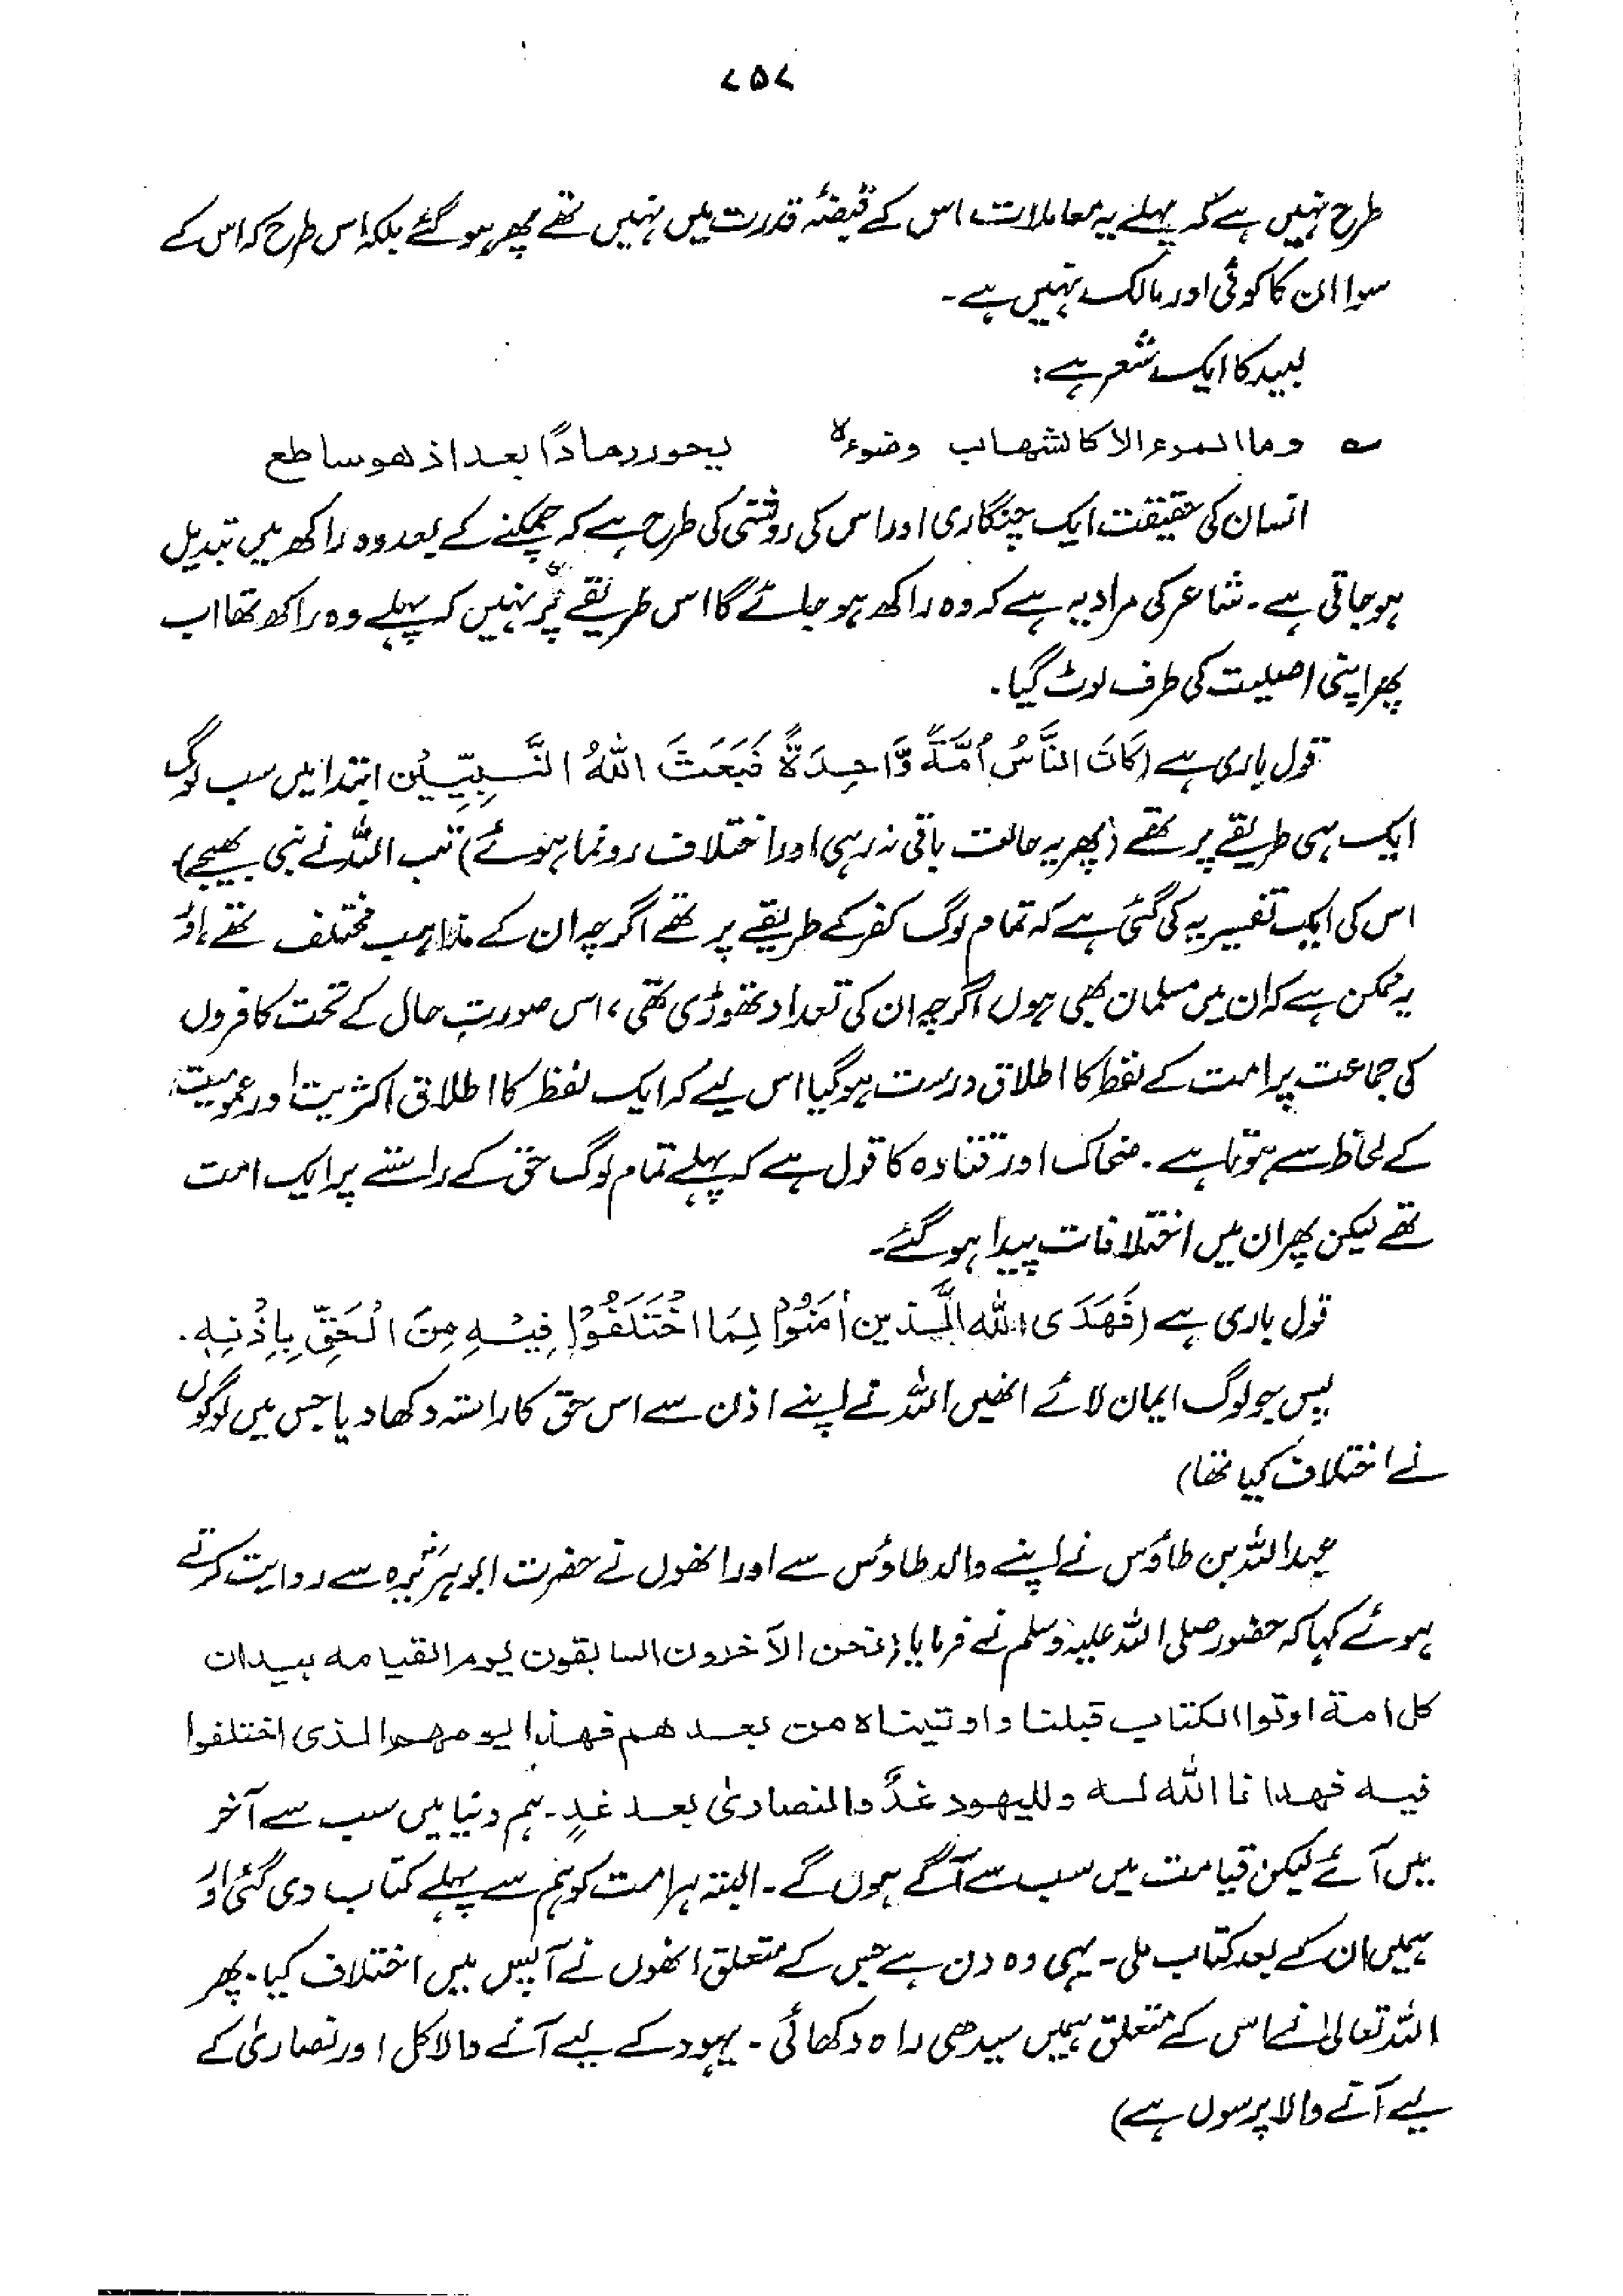 ۷۵۷
طرح نہیں ہے کہ پہلے یہ معاملات اس کے قبضۂ قدرت میں نہیں تھے پھر ہو گئے بلکہ اس طرح کہ اس کے
سوا ان کا کوئی اور مالک نہیں ہے۔
لبید کا ایک شعر ہے:
؎ وما المرء الا کالشهاب وضوءہ یحور رمادًا بعد اذ هو ساطع
انسان کی حقیقت ایک چنگاری اور اس کی روشنی کی طرح ہے کہ چمکنے کے بعد وہ راکھ میں تبدیل
ہو جاتی ہے۔ شاعر کی مراد یہ ہے کہ وہ راکھ ہو جائے گا اس طریقے پر نہیں کہ پہلے وہ راکھ تھا اب
پھر اپنی اصلیت کی طرف لوٹ گیا۔
قول باری ہے (كَانَ النَّاسُ اُمَّةً وَّاحِدَةً فَبَعَثَ اللهُ النَّبِيِّيْن ابتدا میں سب لوگ
ایک ہی طریقے پر تھے (پھر یہ حالت باقی نہ رہی اور اختلاف رونما ہوئے) تب اللہ نے نبی بھیجے)
اس کی ایک تفسیر یہ کی گئی ہے کہ تمام لوگ کفر کے طریقے پر تھے اگرچہ ان کے مذاہب مختلف تھے اور
یہ ممکن ہے کہ ان میں مسلمان بھی ہوں اگرچہ ان کی تعداد تھوڑی تھی، اس صورتِ حال کے تحت کافروں
کی جماعت پر امت کے لفظ کا اطلاق درست ہو گیا اس لیے کہ ایک لفظ کا اطلاق اکثریت اور عمومیت
کے لحاظ سے ہوتا ہے۔ ضحاک اور قتادہ کا قول ہے کہ پہلے تمام لوگ حق کے راستے پر ایک امت
تھے لیکن پھر ان میں اختلافات پیدا ہو گئے۔
قول باری ہے (فَهَدَى الله الَّذين اٰمَنُوْا لِمَا اخْتَلَفُوْا فِيْهِ مِنَ الْحَقِّ بِاِذْنِهٖ۔
پس جو لوگ ایمان لائے انھیں اللہ نے اپنے اذن سے اس حق کا راستہ دکھا دیا جس میں لوگوں
نے اختلاف کیا تھا)
عبداللہ بن طاؤس نے اپنے والد طاؤس سے اور انھوں نے حضرت ابوہریرہؓ سے روایت کرتے
ہوئے کہا کہ حضور صلی اللہ علیہ وسلم نے فرمایا (نحن الآخرون السابقون یوم القیامه بید ان
کل امة اوتوا الکتاب قبلنا واوتیناہ من بعدهم فهذا یومهم الذی اختلفوا
فیه فهدانا الله له وللیهود غدٌ والنصاریٰ بعد غدٍ۔ ہم دنیا میں سب سے آخر
میں آئے لیکن قیامت میں سب سے آگے ہوں گے۔ البتہ ہر امت کو ہم سے پہلے کتاب دی گئی اور
ہمیں ان کے بعد کتاب ملی۔ یہی وہ دن ہے جس کے متعلق انھوں نے آپس میں اختلاف کیا۔ پھر
اللہ تعالیٰ نے اس کے متعلق ہمیں سیدھی راہ دکھائی۔ یہود کے لیے آنے والا کل اور نصاریٰ کے
لیے آنے والا پرسوں ہے)